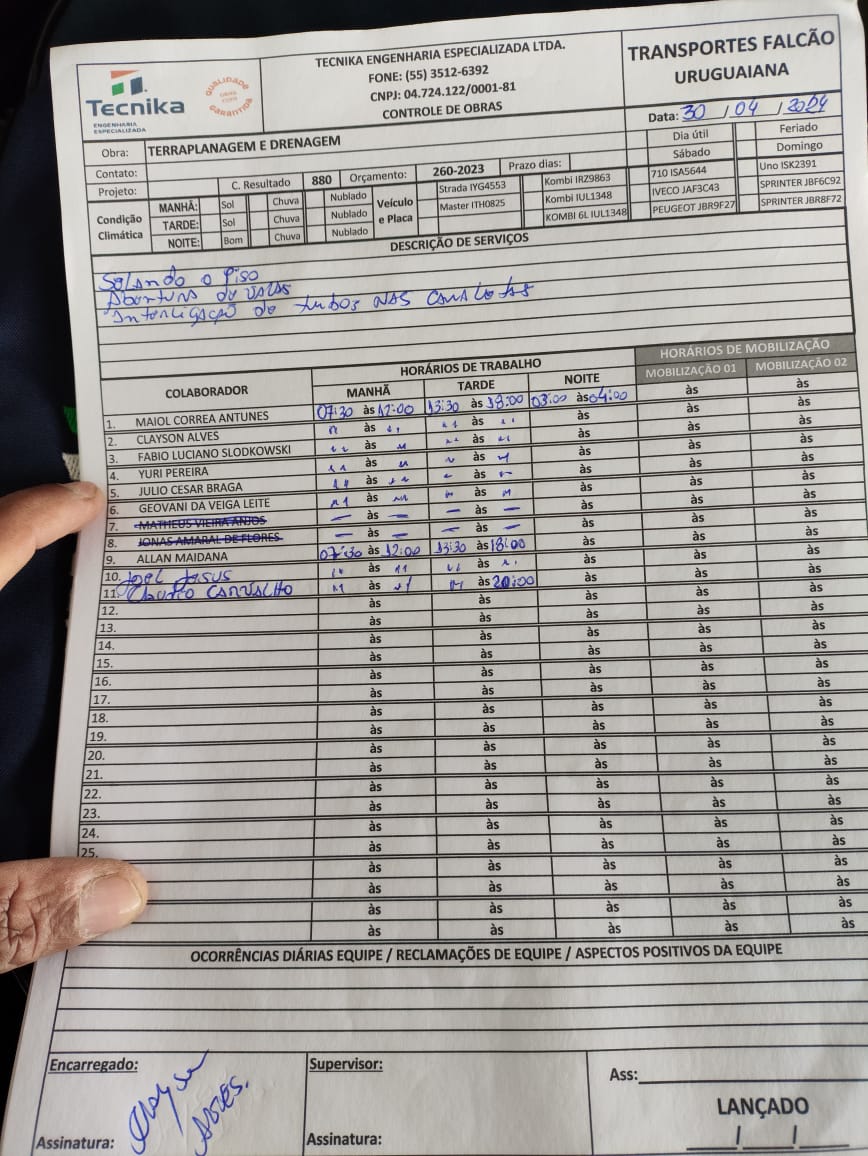 Tecnika
ENGENHARIA
ESPECIALIZADA
QUALIDADE
GARANTIDA
TECNIKA ENGENHARIA ESPECIALIZADA LTDA.
FONE: (55) 3512-6392
CNPJ: 04.724.122/0001-81
CONTROLE DE OBRAS
TRANSPORTES FALCÃO
URUGUAIANA
Data: 30 / 04 / 2024
Obra: TERRAPLANAGEM E DRENAGEM
Dia útil Feriado
Contato:
Sábado Domingo
Projeto: C. Resultado 880 Orçamento: 260-2023 Prazo dias:
Condição Climática
MANHÃ: Sol Chuva Nublado
TARDE: Sol Chuva Nublado
NOITE: Bom Chuva Nublado
Veículo e Placa
Strada IYG4553 Kombi IRZ9863 710 ISA5644 Uno ISK2391
Master ITH0825 Kombi IUL1348 IVECO JAF3C43 SPRINTER JBF6C92
KOMBI 6L IUL1348 PEUGEOT JBR9F27 SPRINTER JBR8F72
DESCRIÇÃO DE SERVIÇOS
Solando o Piso
Abertura de valas
Interligação do tubos nas canaletas
COLABORADOR
HORÁRIOS DE TRABALHO
HORÁRIOS DE MOBILIZAÇÃO
MANHÃ TARDE NOITE MOBILIZAÇÃO 01 MOBILIZAÇÃO 02
1. MAIOL CORREA ANTUNES 07:30 às 12:00 13:30 às 18:00 03:00 às 04:00 às às
2. CLAYSON ALVES " às " " às " às às às
3. FABIO LUCIANO SLODKOWSKI " às " " às " às às às
4. YURI PEREIRA " às " " às " às às às
5. JULIO CESAR BRAGA " às " " às " às às às
6. GEOVANI DA VEIGA LEITE " às " " às " às às às
7. MATHEUS VIEIRA ANJOS — às — — às — às às às
8. JONAS AMARAL DE FLORES — às — — às — às às às
9. ALLAN MAIDANA 07:30 às 12:00 13:30 às 18:00 às às às
10. Joel Jesus " às " " às " às às às
11. Claudio CARVALHO " às " " às 20:00 às às às
12. às às às às às
13. às às às às às
14. às às às às às
15. às às às às às
16. às às às às às
17. às às às às às
18. às às às às às
19. às às às às às
20. às às às às às
21. às às às às às
22. às às às às às
23. às às às às às
24. às às às às às
25. às às às às às
às às às às às
às às às às às
às às às às às
às às às às às
OCORRÊNCIAS DIÁRIAS EQUIPE / RECLAMAÇÕES DE EQUIPE / ASPECTOS POSITIVOS DA EQUIPE
Encarregado:
Supervisor:
Ass:
LANÇADO
Assinatura:
Assinatura:
/ /